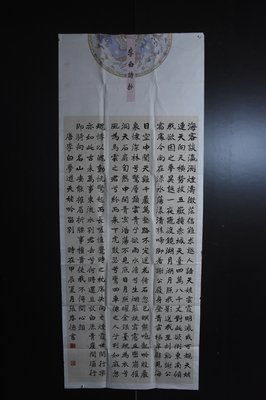 李白詩抄
海客談瀛洲煙濤微茫信難求越人語天姥雲霞明滅或可睹天姥
連天向天橫勢拔五嶽掩赤城天台四萬八千丈對此欲倒東南傾
我欲因之夢吳越一夜飛渡鏡湖月湖月照我影送我至剡溪謝公
宿處今尚在淥水蕩漾清猿啼腳著謝公屐身登青雲梯半壁見海
日空中聞天雞千巖萬壑路不定迷花倚石忽已暝熊咆龍吟殷巖
泉慄深林兮驚層巔雲青青兮欲雨水澹澹兮生煙列缺霹靂丘巒崩摧
洞天石扉訇然中開青冥浩蕩不見底日月照耀金銀臺霓為衣兮
風為馬雲之君兮紛紛而來下虎鼓瑟兮鸞回車仙之人兮列如麻忽
魂悸以魄動怳驚起而長嗟惟覺時之枕席失向來之煙霞世間行樂
亦如此古來萬事東流水別君去兮何時還且放白鹿青崖間須行
即騎向名山安能摧眉折腰事權貴使我不得開心顏
唐李白夢遊天姥吟留別 時在甲辰夏月 書